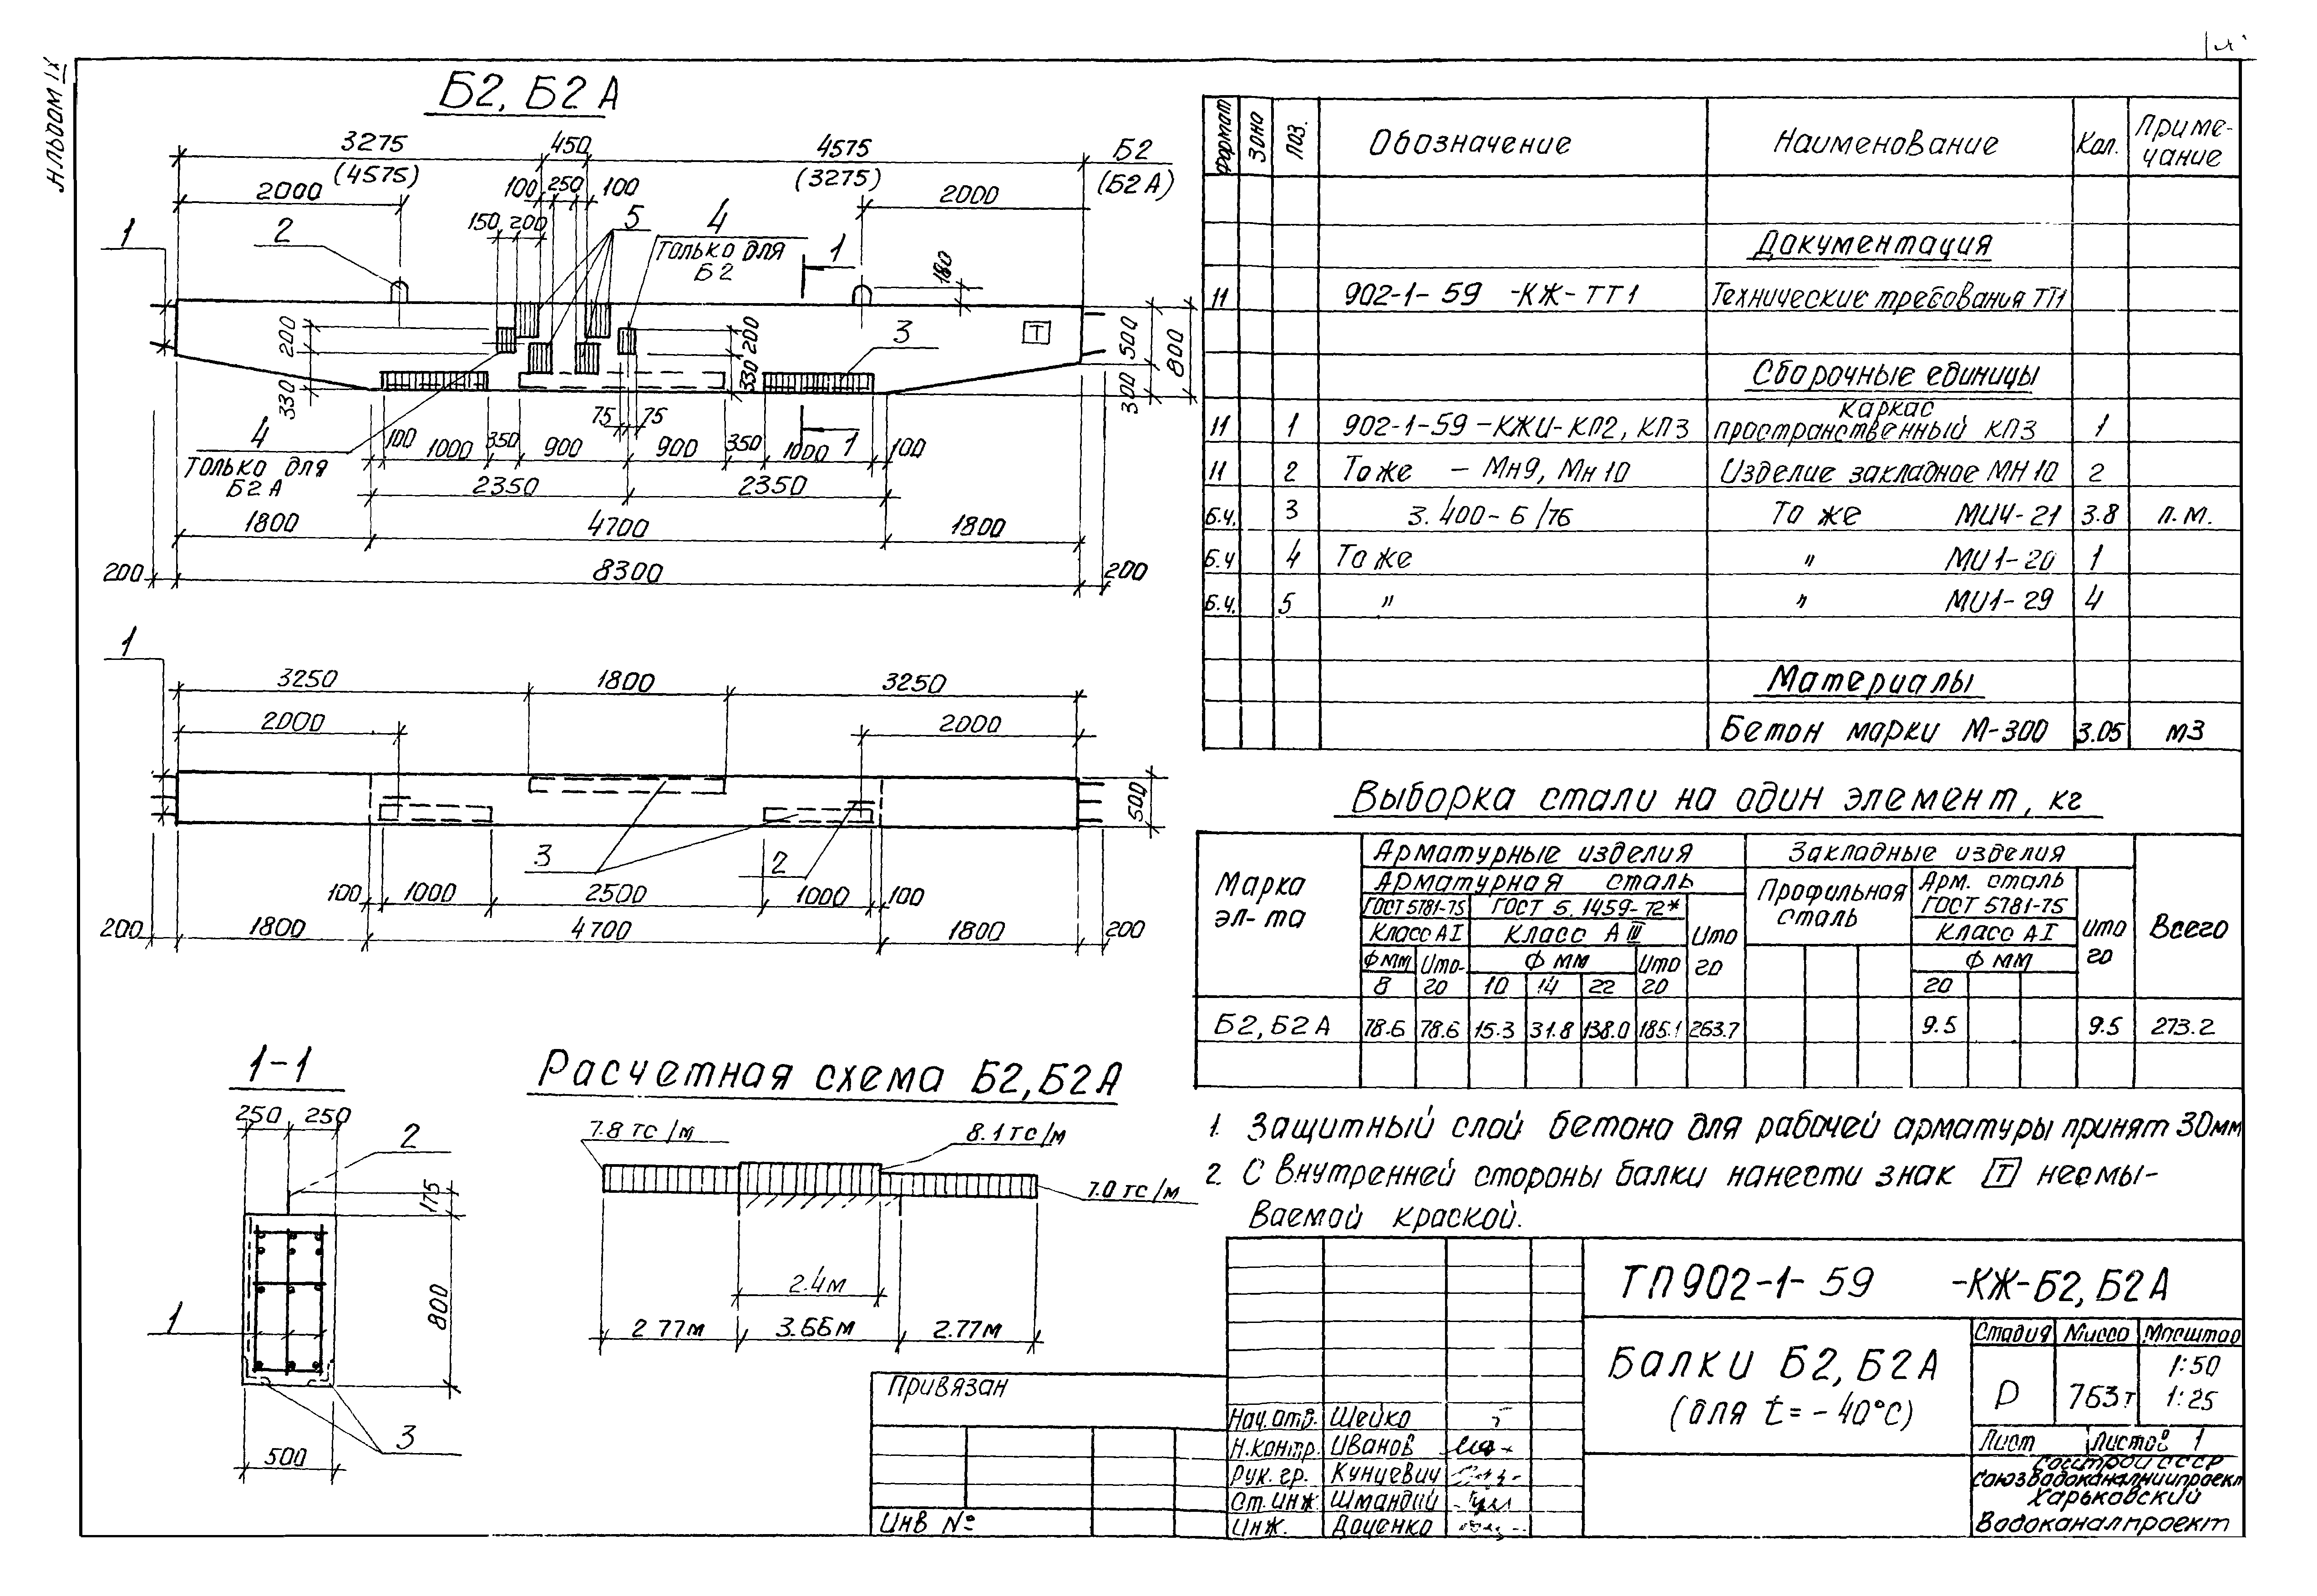 Альбом IX
Б2, Б2А
3275 450 4575 Б2
(4575) (3275) (Б2А)
2000 100 250 100 2000
150 200
1 2 5 4 1 180
только для
Б2
200 330 3 Т 200 330 500 300 800
75 75
4 100 1000 350 900 900 350 1000 1 100
только для
Б2А
2350 2350
1800 4700 1800
200 8300 200
1
3250 1800 3250
2000 2000
500
3 2
100 1000 2500 1000 100
200 1800 4700 1800 200
1-1
250 250
2
175
800
1
3
500
Расчетная схема Б2, Б2А
7.8 тс/м 8.1 тс/м
7.0 тс/м
2.4м
2.77м 3.66м 2.77м
Формат Зона Поз. Обозначение Наименование Кол. Приме-
чание
Документация
11 902-1-59 -КЖ-ТТ1 Технические требования ТТ1
Сборочные единицы
каркас
11 1 902-1-59-КЖИ-КП2, КП3 пространственный КП3 1
11 2 То же - Мн9, Мн10 Изделие закладное МН10 2
Б.ч. 3 3.400-6/76 То же МИ4-21 3.8 п.м.
Б.ч 4 То же " МИ1-20 1
Б.ч. 5 " " МИ1-29 4
Материалы
Бетон марки М-300 3.05 м3
Выборка стали на один элемент, кг
Марка
эл-та
Арматурные изделия Закладные изделия
Арматурная сталь Профильная
сталь Арм. сталь
ГОСТ 5781-75 ГОСТ 5.1459-72* ГОСТ 5781-75
Класс АI Класс АIII Ито
го Класс АI Ито
го Всего
Ф мм Ито-
го Ф мм Ито
го Ф мм
8 10 14 22 20
Б2, Б2А 78.6 78.6 15.3 31.8 138.0 185.1 263.7 9.5 9.5 273.2
1. Защитный слой бетона для рабочей арматуры принят 30мм
2. С внутренней стороны балки нанести знак Т несмы-
ваемой краской.
ТП902-1-59 -КЖ-Б2, Б2А
Балки Б2, Б2А
(для t=-40°С)
Стадия Масса Масштаб
Р 7.63т 1:50
1:25
Лист Листов 1
Госстрой СССР
Союзводоканалниипроект
Харьковский
Водоканалпроект
Нач. отд. Шейко
Н.контр. Иванов
Рук. гр. Кунцевич
Ст. инж. Шмандий
Инж. Доценко
Привязан
Инв №